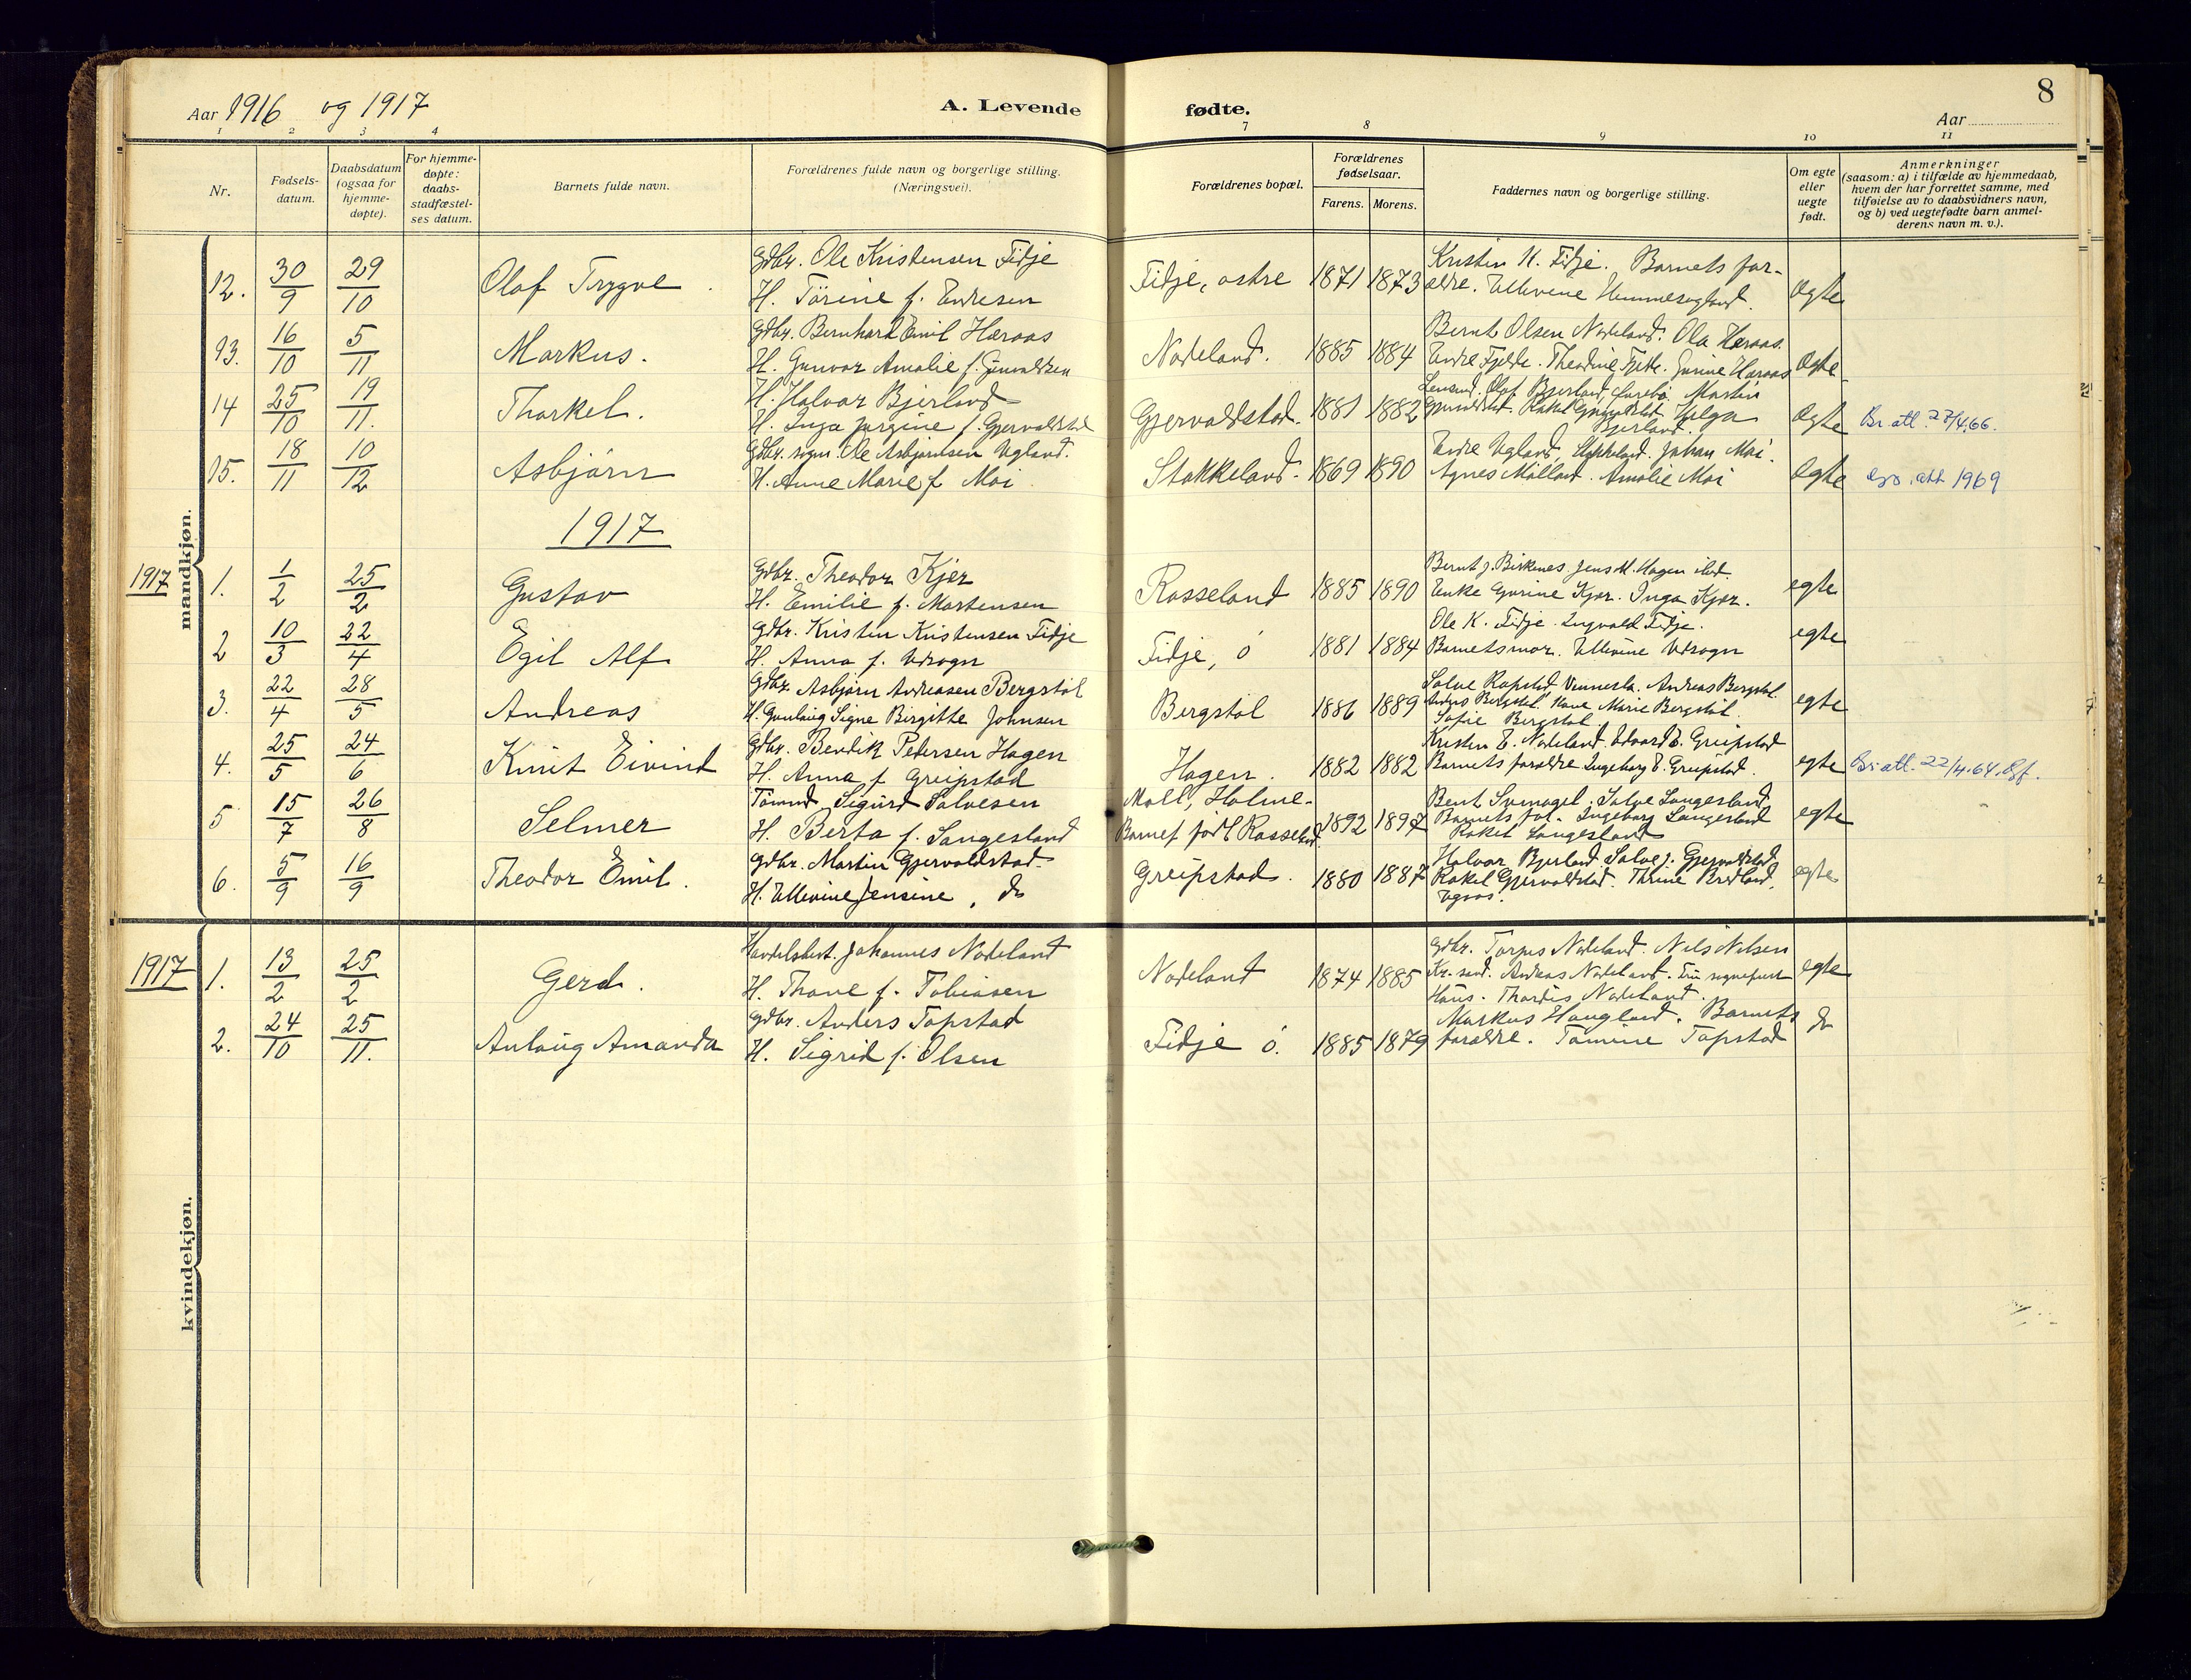 Aar 1916 og 1917
A. Levende fødte.
8
Aar
1 2 3 4 7 8 9 10 11
Nr.
Fødsels-
datum.
Daabsdatum
(ogsaa for
hjemme-
døpte).
For hjemme-
døpte:
daabs-
stadfæstel-
ses datum.
Barnets fulde navn.
Forældrenes fulde navn og borgerlige stilling.
(Næringsvei).
Forældrenes bopæl.
Forældrenes
fødselsaar.
Farens. Morens.
Faddernes navn og borgerlige stilling.
Om egte
eller
uegte
født.
Anmerkninger
(saasom: a) i tilfælde av hjemmedaab,
hvem der har forrettet samme, med
tilføielse av to daabsvidners navn,
og b) ved uegtefødte barn anmel-
derens navn m. v.).
mandkjøn.
12. 30/9 29/10 Olaf Trygve
Gdbr. Ole Kristensen Fidje
H. Tørine f. Endresen
Fidje, østre 1871 1873
Kristin K. Fidje. Barnets for-
ældre. Ellevine Hemmesogland.
Egte
13. 16/10 5/11 Markus.
Gdbr. Bernhard Emil Haraas
H. Gunvor Amalie f. Gunvaldsen
Nodeland. 1885 1884
Bernt Olsen Nodeland. Ola Haraas.
Endre Fjelde. Theodine Fjelde. Gurine Haraas
Egte
14 25/10 19/11. Thorkel.
H. Halvor Bjerland
H. Inga Jørgine f. Gjervoldstad
Gjervoldstad. 1881 1882
Olaf Bjerland, Martin
Gjervoldstad. Rakel Gjervoldstad. Helga
Bjerland.
Egte Br. att. 27/4.66.
15. 18/11 10/12 Asbjørn
Gdbr. sogn. Ole Asbjørnsen Ugland.
H. Anne Marie f. Moi
Stokkeland. 1869 1890
Endre Ugland, Stokkeland. Johan Moi.
Agnes Mølland. Amalie Moi
Egte att 1969
1917
1917
1. 1/2 25/2 Gustav
Gdbr. Theodor Kjær
H. Emilie f. Mortensen
Rosseland 1885 1890
Bernt J. Birkenes. Jens M. Hagen
Enke Gurine Kjær. Inga Kjær.
egte
2 10/3 22/4 Egil Alf
Gdbr. Kristen Kristensen Fidje
H. Anna f. Udsogn
Fidje, ø 1881 1884
Ole K. Fidje. Ingvald Fidje.
Barnets mor. Ellevine Udsogn
egte
3. 22/4 28/5 Andreas
Gdbr. Asbjørn Andreasen Bergstøl
H. Gunlaug Signe Birgitte Johnsen
Bergstøl 1886 1889
Salve Rapstad, Vennesla. Andreas Bergstøl.
Anders Bergstøl. Kone Marie Bergstøl.
Sofie Bergstøl.
egte
4. 25/5 24/6 Knut Eivind
Gdbr. Bendik Petersen Hagen
H. Anna f. Greipstad
Hagen. 1882 1882
Kristen E. Nodeland. Edvard E. Greipstad
Barnets forældre Ingeborg E. Greipstad.
egte Br. att. 22/4.64.
5 15/7 26/8 Selmer
Tømmd. Sigurd Salvesen
H. Berta f. Langesland
Moll, Holme-
Barnet født Rosseland 1892 1897
Bent Salve Langesland
Barnets far. Ingeborg Langesland
Rakel Langesland
egte
6. 5/9 16/9 Theodor Emil.
Gdbr. Martin Gjervoldstad
H. Ellevine Jensine, do
Greipstad. 1880 1887
Halvor Bjerland. Salve J. Gjervoldstad
Rakel Gjervoldstad. Thrine Bredland,
egte
kvindekjøn.
1917 1. 13/2 25/2 Gerd.
Handelsbest. Johannes Nodeland
H. Thove f. Tobiasen
Nodeland 1874 1885
Gdbr. Torjus Nodeland. Nils Nilsen
Kr.sand. Andreas Nodeland. Fru
Haus. Thordis Nodeland.
egte
2. 24/10 25/11. Aulaug Amanda
Gdbr. Anders Topstad
H. Sigrid f. Olsen
Fidje ø. 1885 1879
Markus Haugland. Barnets
forældre. Tomine Topstad
do